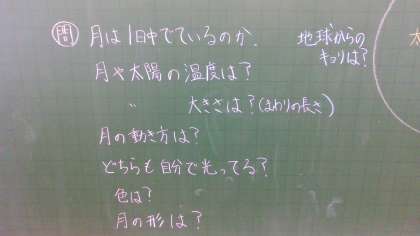 問 月は1日中でているのか.
地球からの
キョリは?
月や太陽の温度は?
〃 大きさは?(まわりの長さ)
月の動き方は?
どちらも自分で光ってる?
色は?
月の形は?